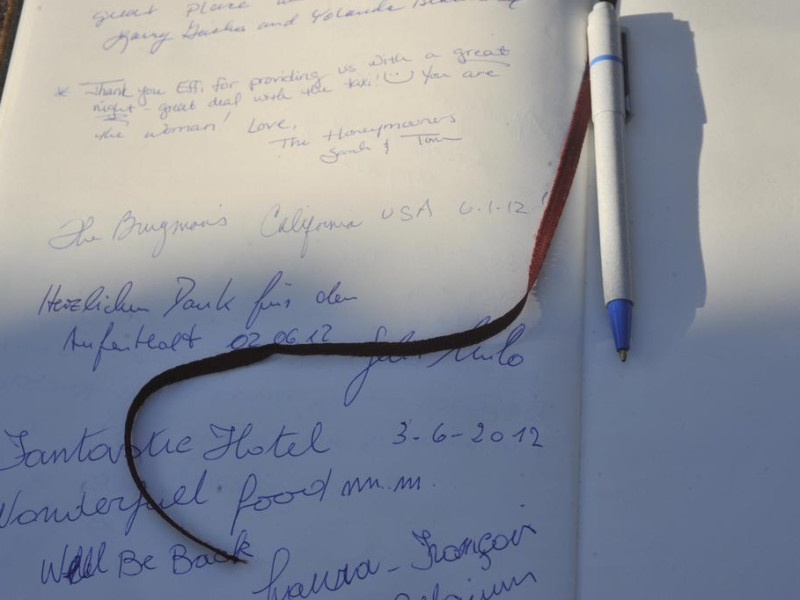 great place
Harry and Yolande
* Thank you Effi for providing us with a great
night - great deal with the taxi! You are
the woman! Love,
The Honeymooners
Sarah & Tom
The Burgman's California USA 6.1.12!
Herzlichen Dank für den
Aufenthalt 02.06.12
Fantastic Hotel 3-6-2012
Wonderfull food mm.m.
Will Be Back
François